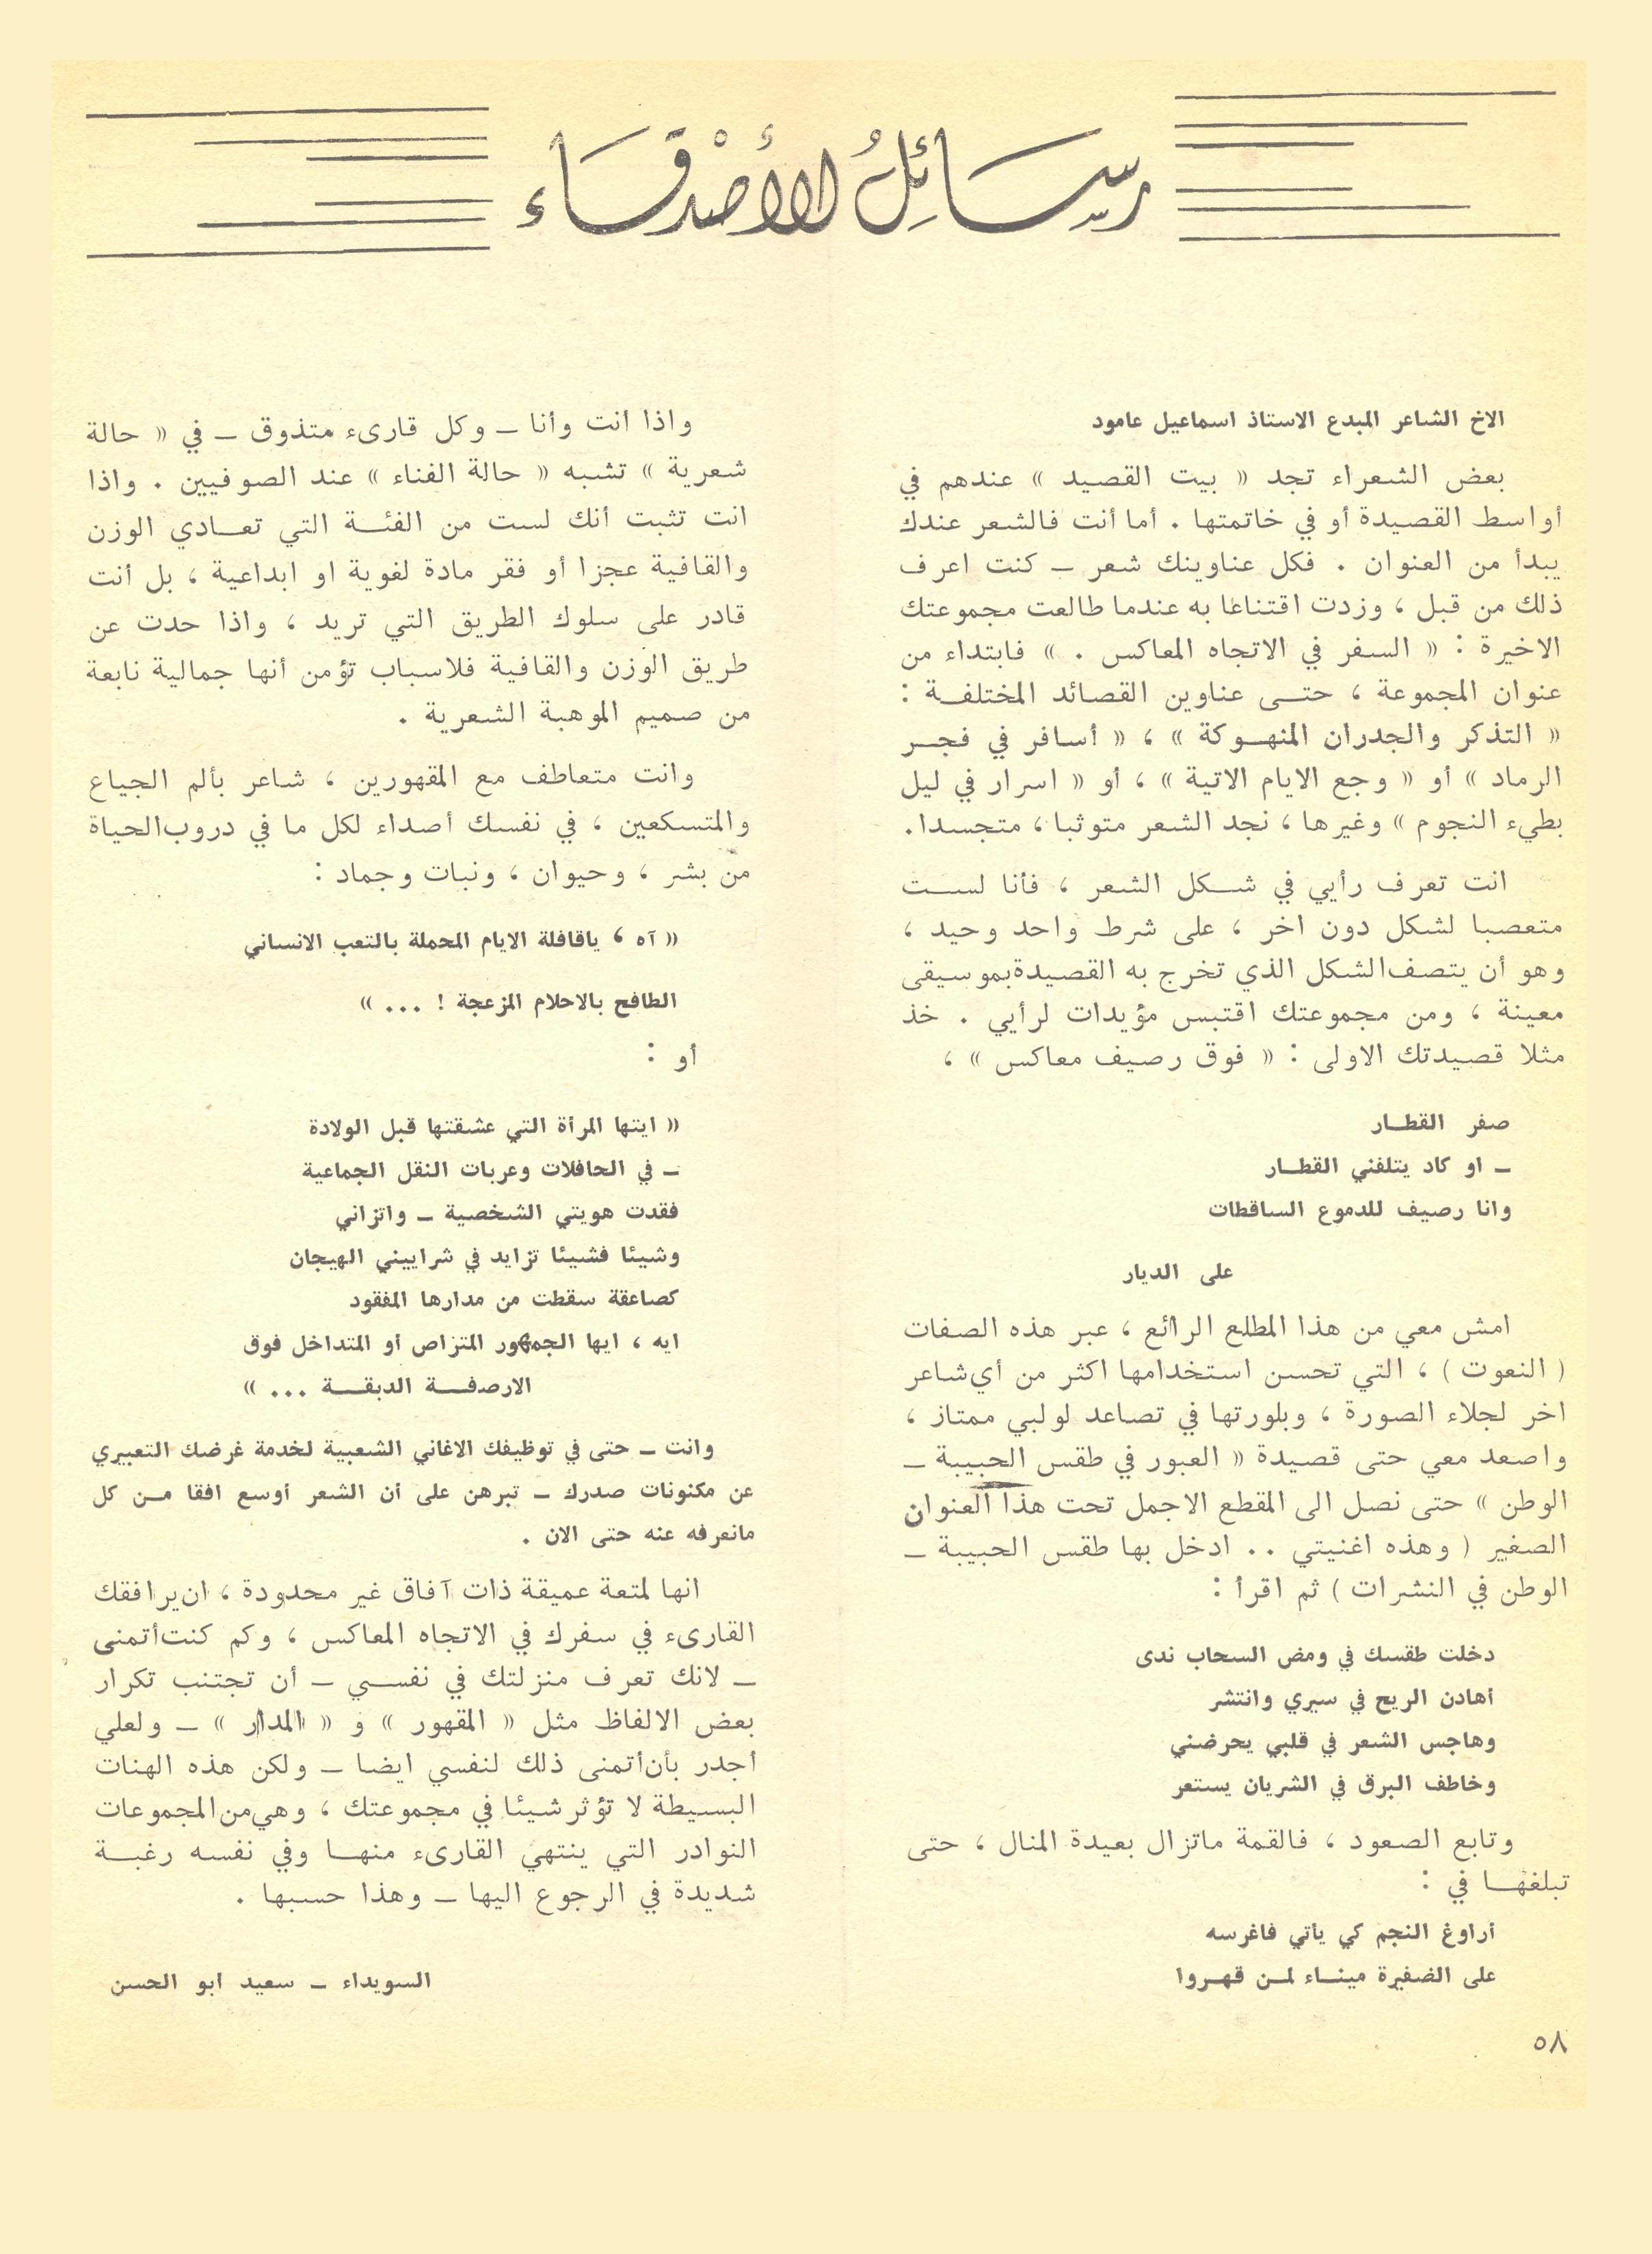 رسائل الأصدقاء
الاخ الشاعر المبدع الاستاذ اسماعيل عامود
بعض الشعراء تجد « بيت القصيد » عندهم في
أواسط القصيدة أو في خاتمتها . أما أنت فالشعر عندك
يبدأ من العنوان . فكل عناوينك شعر ــ كنت اعرف
ذلك من قبل ، وزدت اقتناعا به عندما طالعت مجموعتك
الاخيرة : « السفر في الاتجاه المعاكس . » فابتداء من
عنوان المجموعة ، حتى عناوين القصائد المختلفة :
« التذكر والجدران المنهوكة » ، « أسافر في فجر
الرماد » أو « وجع الايام الاتية » ، أو « اسرار في ليل
بطيء النجوم » وغيرها ، نجد الشعر متوثبا ، متجسدا .
انت تعرف رأيي في شكل الشعر ، فأنا لست
متعصبا لشكل دون اخر ، على شرط واحد وحيد ،
وهو أن يتصف الشكل الذي تخرج به القصيدة بموسيقى
معينة ، ومن مجموعتك اقتبس مؤيدات لرأيي . خذ
مثلا قصيدتك الاولى : « فوق رصيف معاكس » ،
صفر القطار
ــ او كاد يتلفني القطار
وانا رصيف للدموع الساقطات
على الديار
امش معي من هذا المطلع الرائع ، عبر هذه الصفات
( النعوت ) ، التي تحسن استخدامها اكثر من أي شاعر
اخر لجلاء الصورة ، وبلورتها في تصاعد لولبي ممتاز ،
واصعد معي حتى قصيدة « العبور في طقس الحبيبة ــ
الوطن » حتى نصل الى المقطع الاجمل تحت هذا العنوان
الصغير ( وهذه اغنيتي .. ادخل بها طقس الحبيبة ــ
الوطن في النشرات ) ثم اقرأ :
دخلت طقسك في ومض السحاب ندى
أهادن الريح في سيري وانتشر
وهاجس الشعر في قلبي يحرضني
وخاطف البرق في الشريان يستعر
وتابع الصعود ، فالقمة ماتزال بعيدة المنال ، حتى
تبلغها في :
أراوغ النجم كي يأتي فاغرسه
على الضفيرة ميناء لمن قهروا
واذا أنت وأنا ــ وكل قارىء متذوق ــ في « حالة
شعرية » تشبه « حالة الفناء » عند الصوفيين . واذا
انت تثبت أنك لست من الفئة التي تعادي الوزن
والقافية عجزا أو فقر مادة لغوية او ابداعية ، بل أنت
قادر على سلوك الطريق التي تريد ، واذا حدت عن
طريق الوزن والقافية فلاسباب تؤمن أنها جمالية نابعة
من صميم الموهبة الشعرية .
وانت متعاطف مع المقهورين ، شاعر بألم الجياع
والمتسكعين ، في نفسك أصداء لكل ما في دروب الحياة
من بشر ، وحيوان ، ونبات وجماد :
« آه ، ياقافلة الايام المحملة بالتعب الانساني
الطافح بالاحلام المزعجة ! ... »
أو :
« ايتها المرأة التي عشقتها قبل الولادة
ــ في الحافلات وعربات النقل الجماعية
فقدت هويتي الشخصية ــ واتزاني
وشيئا فشيئا تزايد في شراييني الهيجان
كصاعقة سقطت من مدارها المفقود
ايه ، ايها الجمهور المتزاص أو المتداخل فوق
الارصفة الدبقة ... »
وانت ــ حتى في توظيفك الاغاني الشعبية لخدمة غرضك التعبيري
عن مكنونات صدرك ــ تبرهن على أن الشعر أوسع افقا من كل
مانعرفه عنه حتى الان .
انها لمتعة عميقة ذات آفاق غير محدودة ، ان يرافقك
القارىء في سفرك في الاتجاه المعاكس ، وكم كنت أتمنى
ــ لانك تعرف منزلتك في نفسي ــ أن تجتنب تكرار
بعض الالفاظ مثل « المقهور » و « المدار » ــ ولعلي
أجدر بأن أتمنى ذلك لنفسي ايضا ــ ولكن هذه الهنات
البسيطة لا تؤثر شيئا في مجموعتك ، وهي من المجموعات
النوادر التي ينتهي القارىء منها وفي نفسه رغبة
شديدة في الرجوع اليها ــ وهذا حسبها .
السويداء ــ سعيد ابو الحسن
٥٨